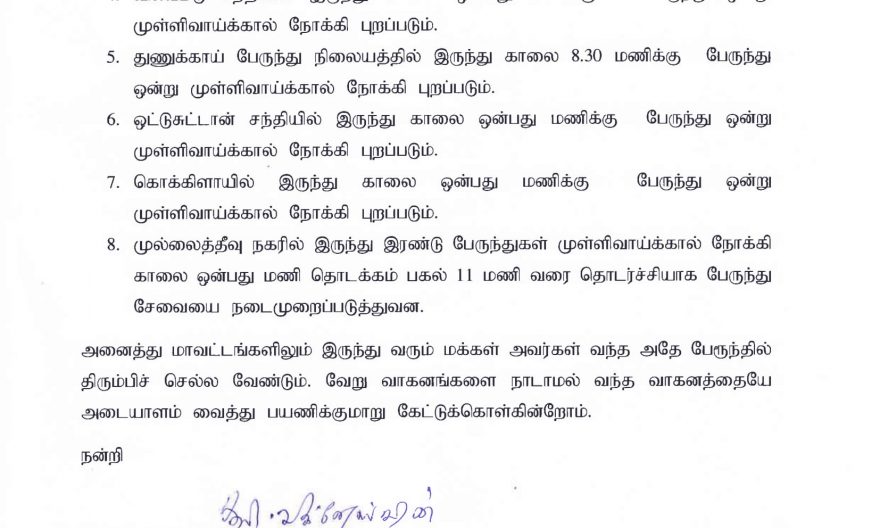 முள்ளிவாய்க்கால் நோக்கி புறப்படும்.
5. துணுக்காய் பேருந்து நிலையத்தில் இருந்து காலை 8.30 மணிக்கு பேருந்து
ஒன்று முள்ளிவாய்க்கால் நோக்கி புறப்படும்.
6. ஒட்டுசுட்டான் சந்தியில் இருந்து காலை ஒன்பது மணிக்கு பேருந்து ஒன்று
முள்ளிவாய்க்கால் நோக்கி புறப்படும்.
7. கொக்கிளாயில் இருந்து காலை ஒன்பது மணிக்கு பேருந்து ஒன்று
முள்ளிவாய்க்கால் நோக்கி புறப்படும்.
8. முல்லைத்தீவு நகரில் இருந்து இரண்டு பேருந்துகள் முள்ளிவாய்க்கால் நோக்கி
காலை ஒன்பது மணி தொடக்கம் பகல் 11 மணி வரை தொடர்ச்சியாக பேருந்து
சேவையை நடைமுறைப்படுத்துவன.
அனைத்து மாவட்டங்களிலும் இருந்து வரும் மக்கள் அவர்கள் வந்த அதே பேரூந்தில்
திரும்பிச் செல்ல வேண்டும். வேறு வாகனங்களை நாடாமல் வந்த வாகனத்தையே
அடையாளம் வைத்து பயணிக்குமாறு கேட்டுக்கொள்கின்றோம்.
நன்றி